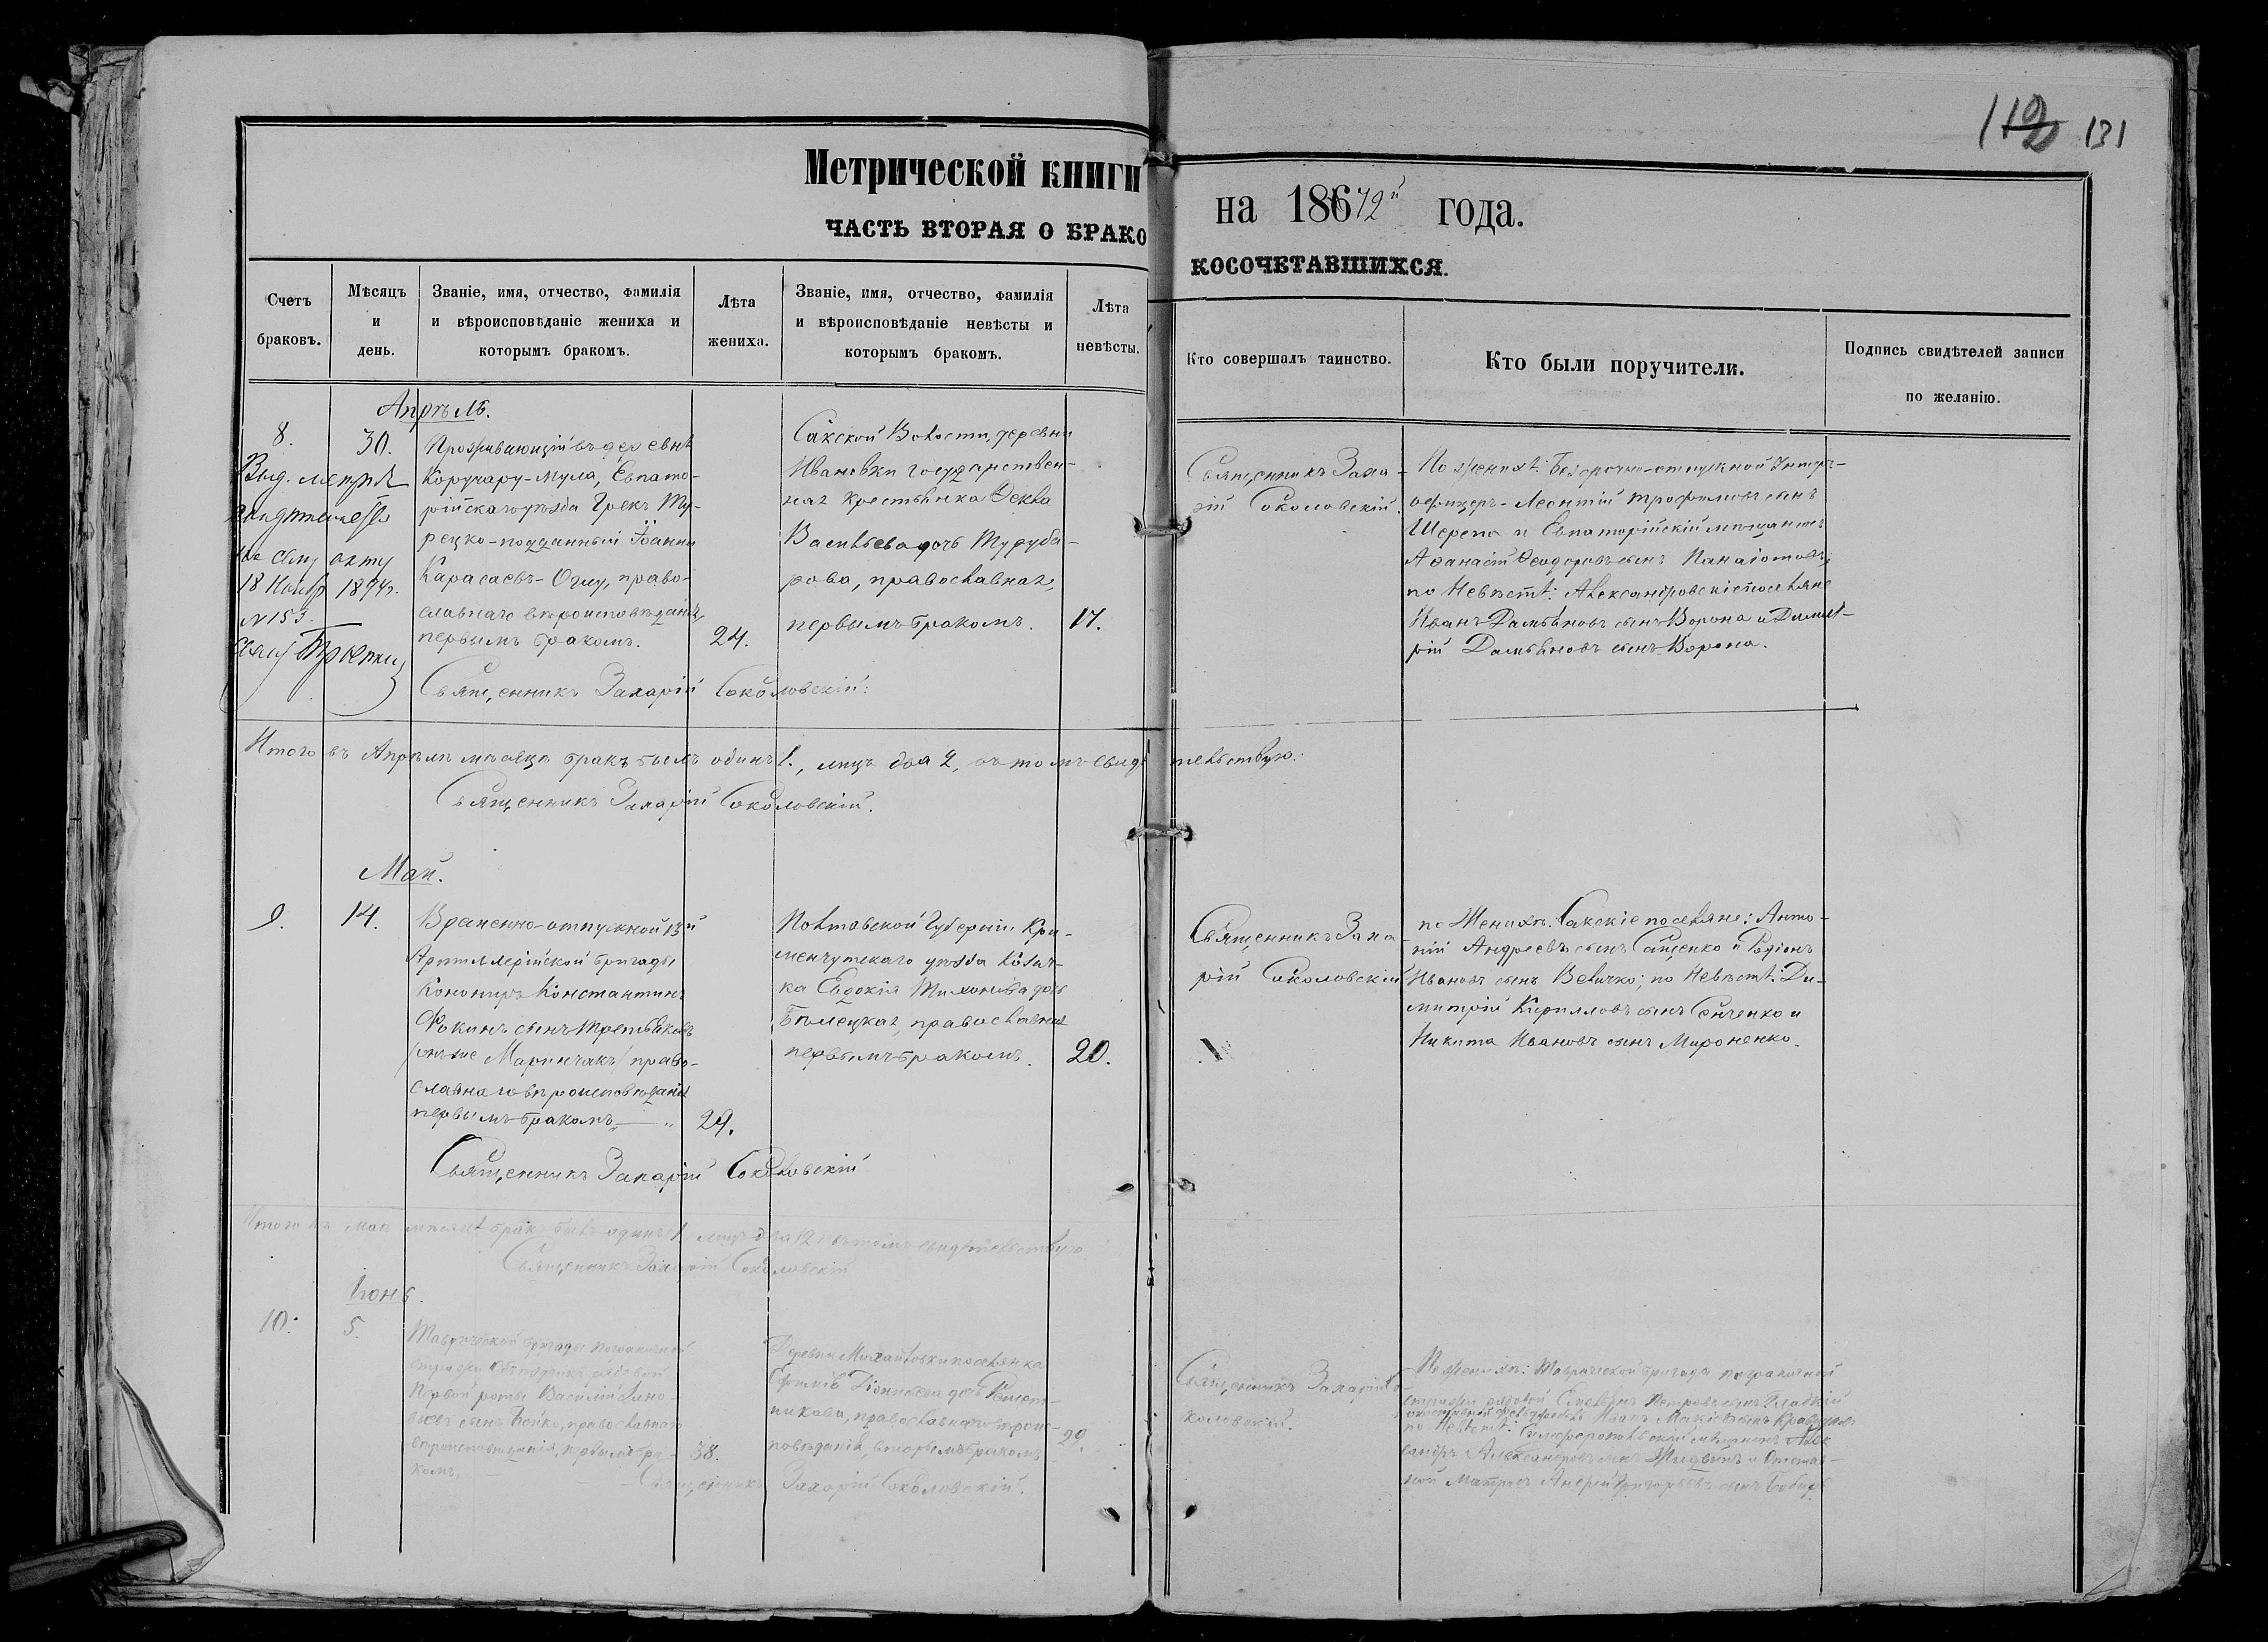 119 131
Метрической книги на 1872й года.
ЧАСТЬ ВТОРАЯ О БРАКО КОСОЧЕТАВШИХСЯ.
Счетъ браковъ.
Мѣсяцъ и день.
Званіе, имя, отчество, фамилія
и вѣроисповѣданіе жениха и
которымъ бракомъ.
Лѣта жениха.
Званіе, имя, отчество, фамилія
и вѣроисповѣданіе невѣсты и
которымъ бракомъ.
Лѣта невѣсты.
Кто совершалъ таинство.
Кто были поручители.
Подпись свидѣтелей записи
по желанію.
Апрѣль.
8.
30.
Выд. метрич.
по сему акту
18 Нояб 1894г.
№153.
Проживающій въ деревнѣ
Коручару-Мула, Евпато-
рійскаго уѣзда Грекъ Ту-
рецко-подданный Іоаннъ
Карасаевъ-Оглу, право-
славнаго вѣроисповѣданія,
первымъ бракомъ.
24.
Сакской Волости, деревни
Ивановки государствен-
ная крестьянка Ѳекла
Васильева дочь Туруба-
рова, православная,
первымъ бракомъ.
17.
Священникъ Заха-
рій Соколовскій.
По женихѣ: Безсрочно-отпускной Унтеръ-
офицеръ-Леонтій Трофимовъ сынъ
Шерепа и Евпаторійскій мѣщанинъ
Аѳанасій Ѳеодоровъ сынъ Панаіотовъ;
по Невѣстѣ: Александровскіе поселяне
Иванъ Дамьяновъ сынъ Ворона и Димит-
рій Дамьяновъ сынъ Ворона.
Священникъ Захарій Соколовскій:
Итого въ Апрѣлѣ мѣсяцѣ бракъ былъ одинъ 1., лицъ два 2, въ томъ свидѣтельствую:
Священникъ Захарій Соколовскій.
Май.
9.
14.
Временно-отпускной 13й
Артиллерійской бригады
Конониръ Константинъ
Фокинъ сынъ Третьяковъ
/онъ же Маринчакъ/ право-
славнаго вѣроисповѣданія
первымъ бракомъ
29.
Полтавской Губерніи Кре-
менчугскаго уѣзда Козач-
ка Евдокія Тихонова дочь
Бѣлецкая, православная
первымъ бракомъ.
20.
Священникъ Заха-
рій Соколовскій
по Женихѣ: Сакскіе поселяне: Анто-
ній Андреевъ сынъ Сащенко и Родіонъ
Ивановъ сынъ Величко; по Невѣстѣ: Ди-
митрій Кирилловъ сынъ Сенченко и
Никита Ивановъ сынъ Мироненко.
Священникъ Захарій Соколовскій
Итого въ маѣ мѣсяцѣ бракъ былъ одинъ 1, лицъ два /2/ въ томъ свидѣтельствую
Священникъ Захарій Соколовскій
Іюнь.
10.
5.
Таврической бригады пограничной
стражи
Первой роты Василій Зино-
вьевъ сынъ Бойко, православнаго
вѣроисповѣданія, первымъ бра-
комъ.
38.
Деревни Михайловки поселянка
Ефимія Діонисьева дочь
никова, православнаго вѣроис-
повѣданія, вторымъ бракомъ
29.
Священникъ Захарій Со-
коловскій.
По женихѣ: Таврической бригады пограничной
стражи рядовой Петровъ сынъ Гладкій
Иванъ
по Невѣстѣ: Симферопольскій мѣщанинъ Алек-
сандръ Александровъ сынъ и Отстав-
ной Матросъ Андрей Григорьевъ сынъ
Священникъ Захарій Соколовскій.